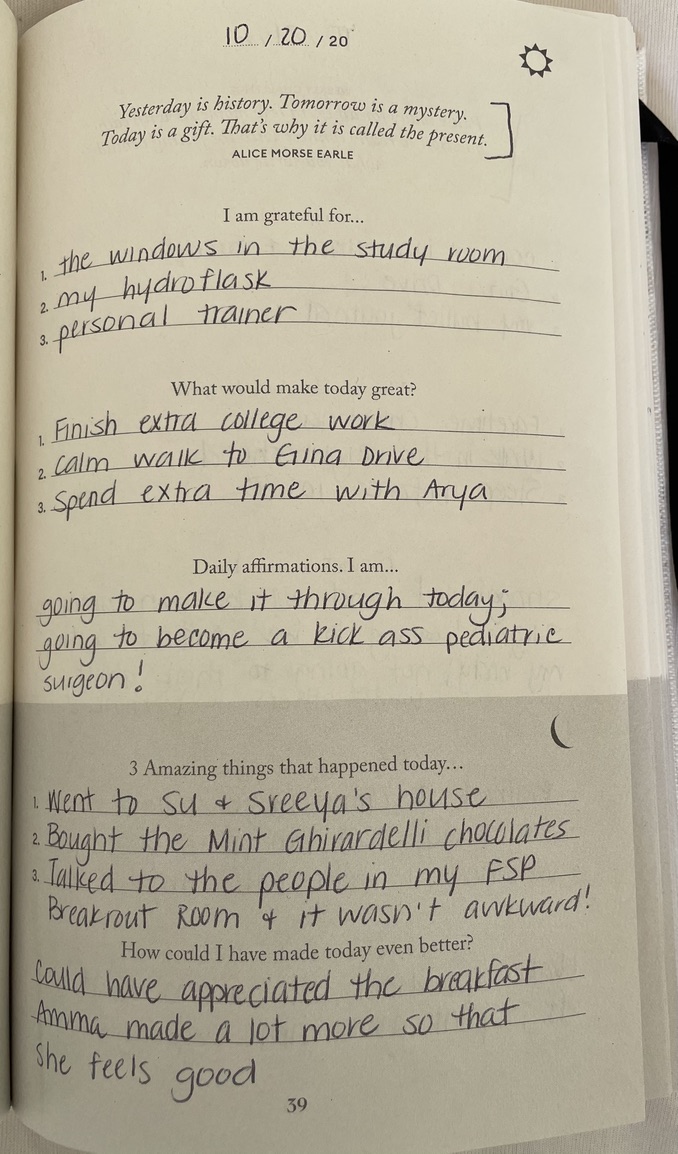 10 / 20 / 20
Yesterday is history. Tomorrow is a mystery.
Today is a gift. That's why it is called the present.
ALICE MORSE EARLE
I am grateful for...
1. the windows in the study room
2. my hydroflask
3. personal trainer
What would make today great?
1. Finish extra college work
2. Calm walk to Gina Drive
3. Spend extra time with Arya
Daily affirmations. I am...
going to make it through today;
going to become a kick ass pediatric
surgeon!
3 Amazing things that happened today...
1. Went to Su & Sreeya's house
2. Bought the Mint Ghirardelli chocolates
3. Talked to the people in my FSP
Breakrout Room & it wasn't awkward!
How could I have made today even better?
Could have appreciated the breakfast
Amma made a lot more so that
she feels good
39